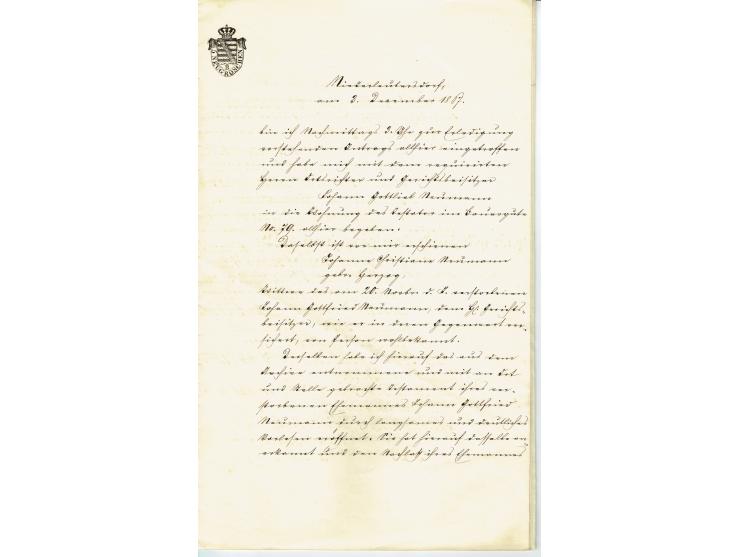 5 NEUGROSCHEN
Niederleutersdorf,
am 3. December 1867.
bin ich Nachmittags 2 Uhr zur Erledigung
vorstehenden Antrags allhier eingetroffen
und habe mich mit dem requirirten
Herrn Ortsrichter und Gerichtsbeisitzer
Johann Gottlieb Neumann
in die Wohnung des Testator im Bauergute
No. 79. allhier begeben.
Daselbst ist vor mir erschienen
Johanne Christiane Neumann
geb. Herzog,
Wittwe des am 20. Novbr d. J. verstorbenen
Johann Gottfried Neumann, dem Hr. Gerichts-
beisitzer, wie er in deren Gegenwart ver-
sichert, von Person wohlbekannt.
Derselben habe ich hierauf das aus dem
Archive entnommene und mit an Ort
und Stelle gebrachte Testament ihres ver-
storbenen Ehemannes Johann Gottfried
Neumann durch langsames und deutliches
Vorlesen eröffnet. Sie hat hierauf dasselbe an-
erkannt und den Nachlaß ihres Ehemannes